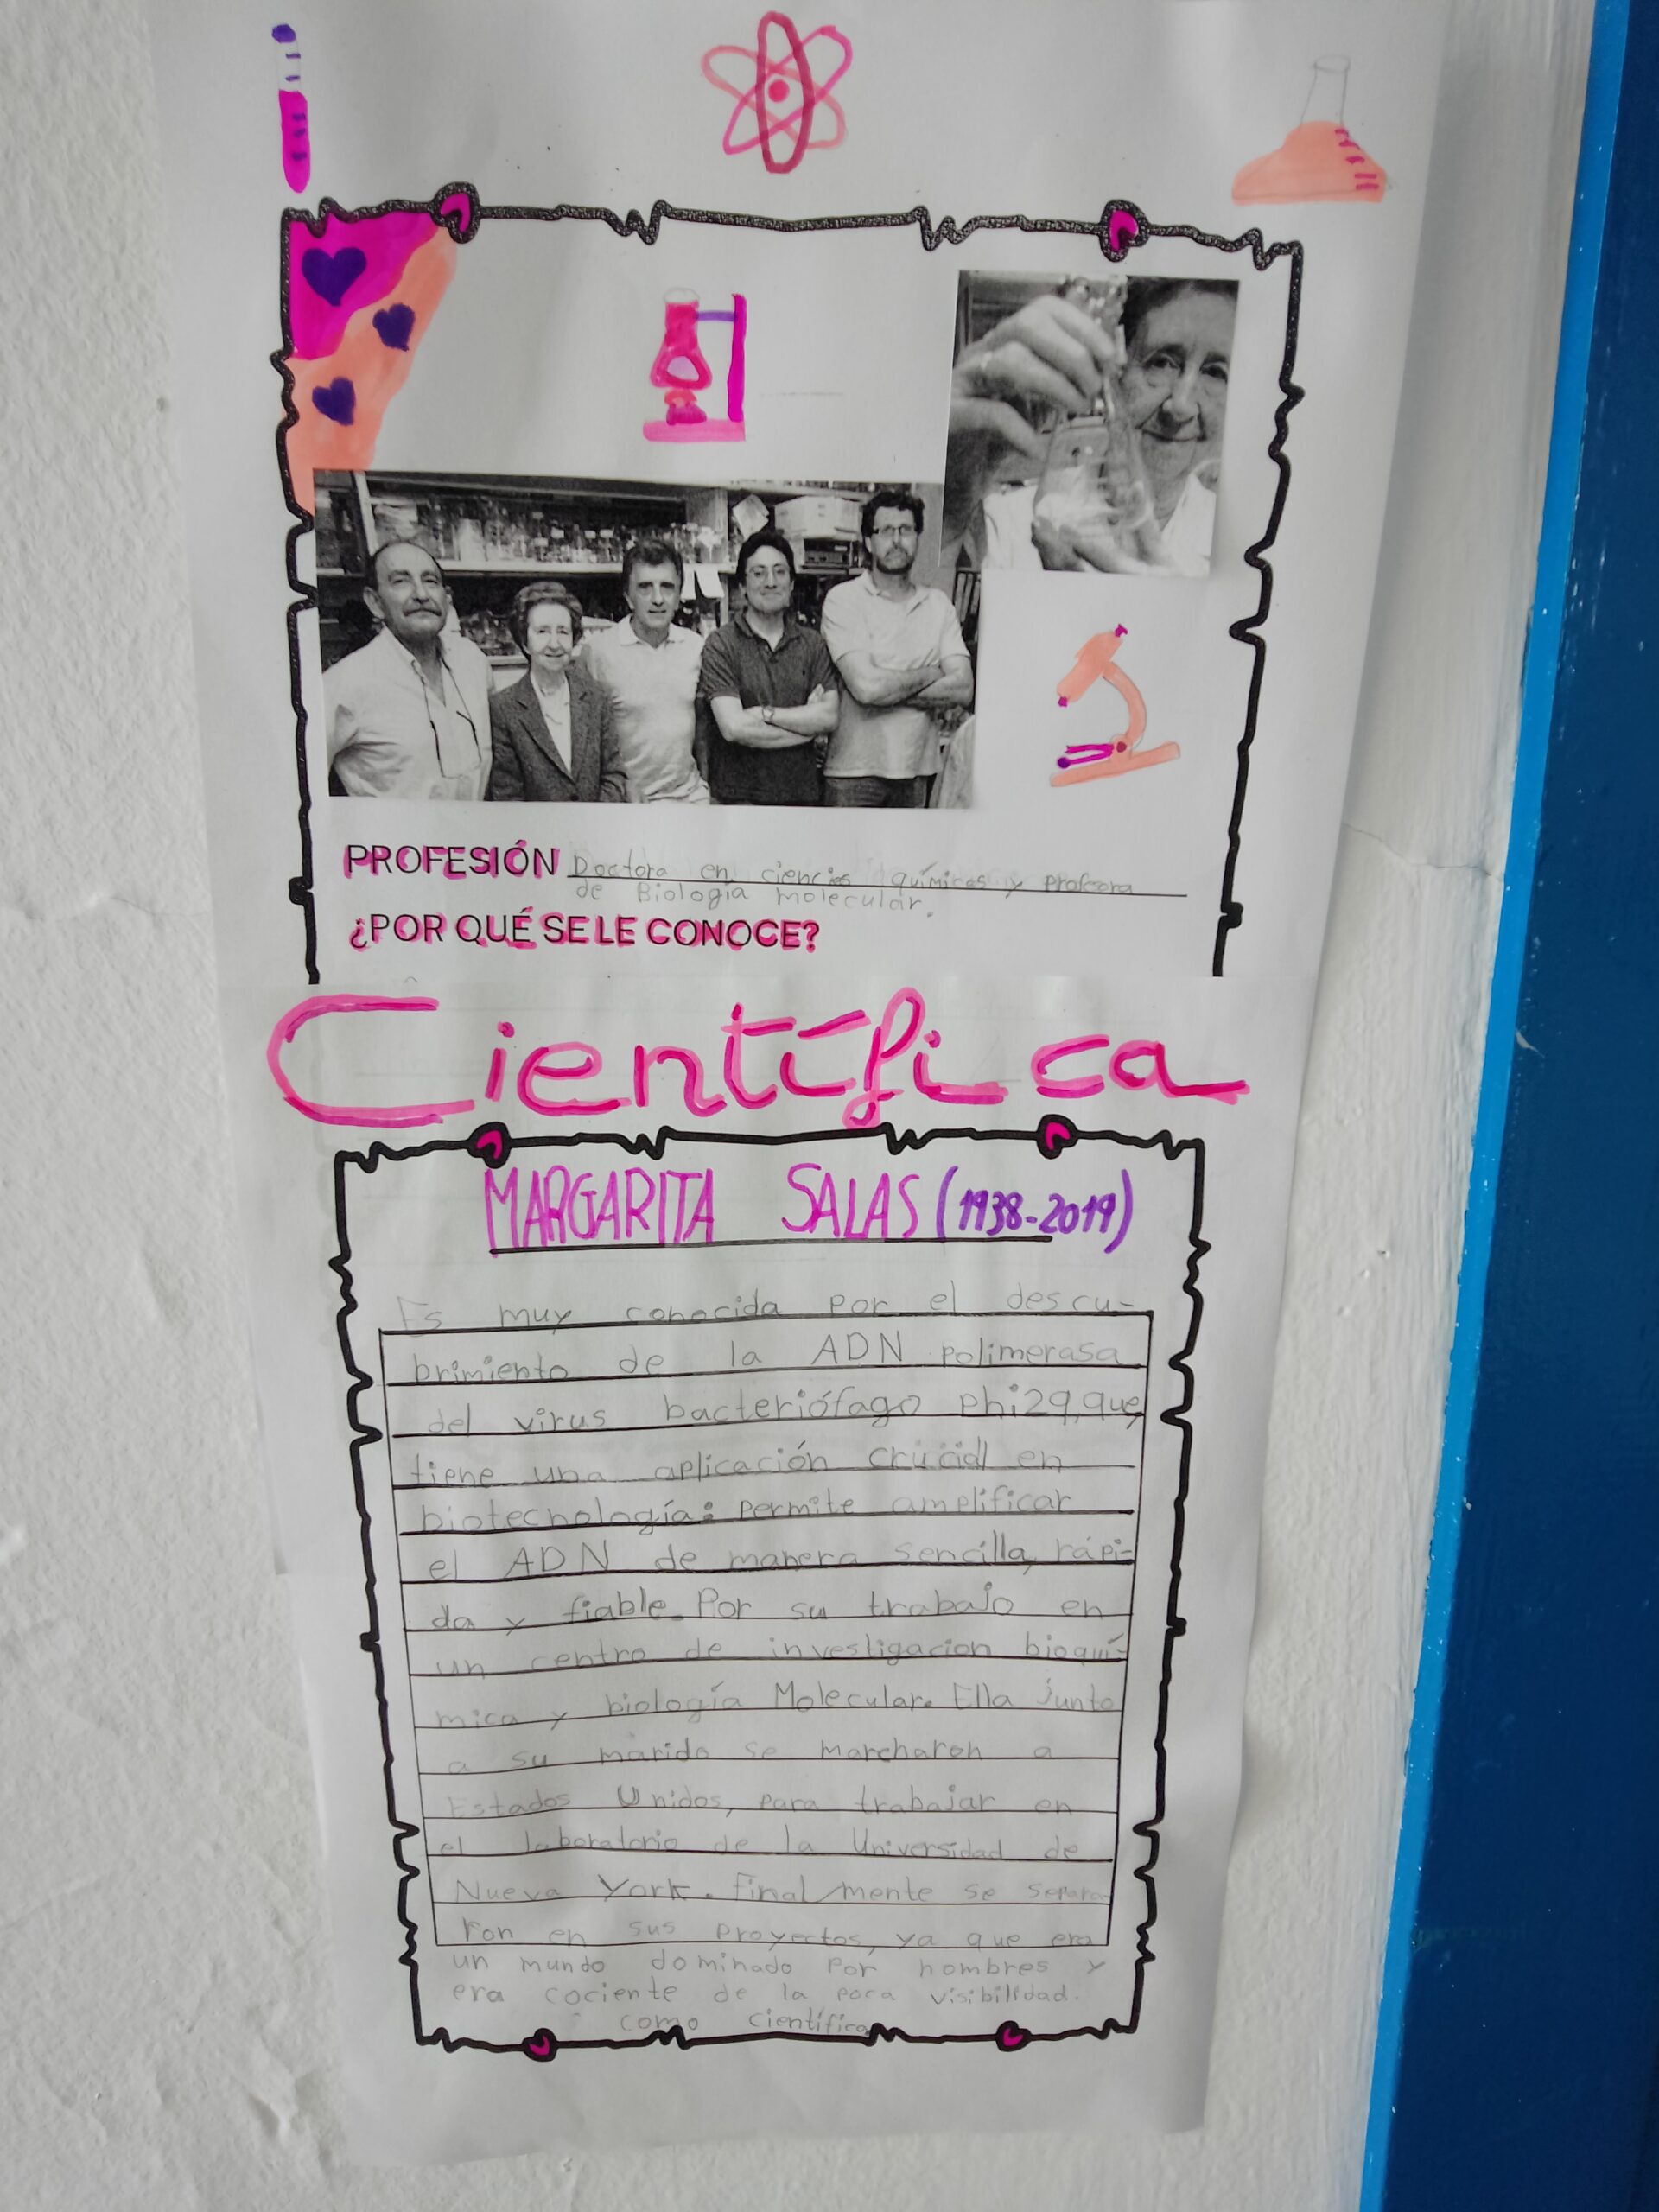 PROFESIÓN Doctora en ciencias químicas y profesora
de Biología molecular.
¿POR QUÉ SE LE CONOCE?
Científica
MARGARITA SALAS (1938-2019)
Es muy conocida por el descu-
brimiento de la ADN polimerasa
del virus bacteriófago phi29, que
tiene una aplicación crucial en
biotecnología: permite amplificar
el ADN de manera sencilla, rápi-
da y fiable. Por su trabajo en
un centro de investigacion bioquí-
mica y biología Molecular. Ella junto
a su marido se marcharon a
Estados Unidos, para trabajar en
el laboratorio de la Universidad de
Nueva York. Finalmente se separa-
ron en sus proyectos, ya que era
un mundo dominado por hombres y
era cociente de la poca visibilidad.
como científica